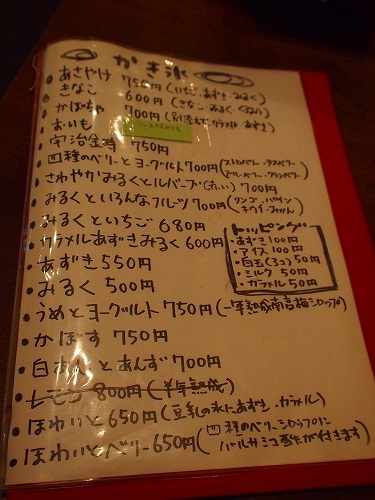 かき氷
・あさやけ 750円(いちご・あずき・みるく)
・きなこ 600円(きなこ・みるく・くろみつ)
・かぼちゃ 700円(別添えでカラメル あずき)
・おいも
・宇治金時 750円
・四種のベリーとヨーグルト700円(ストロベリー・ラズベリー
ブルーベリー・クランベリー)
・さわやかみるくとルバーブ(赤い) 700円
・みるくといろんなフルーツ 700円(リンゴ・パイン
キウイ・みかん)
・みるくといちご 680円
・カラメルあずきみるく 600円
・あずき 550円
・みるく 500円
トッピング
・あずき 100円
・アイス 100円
・白玉(3コ) 50円
・ミルク 50円
・カラメル 50円
・うめとヨーグルト 750円(一年熟成南高梅シロップ)
・かぼす 750円
・白あんとあんず 700円
・レモン 800円(半年熟成)
・ほわいと 650円(豆乳の氷にあずき・カラメル)
・ほわいとベリー 650円(四種のベリーシロップに
バルサミコ酢が付きます)